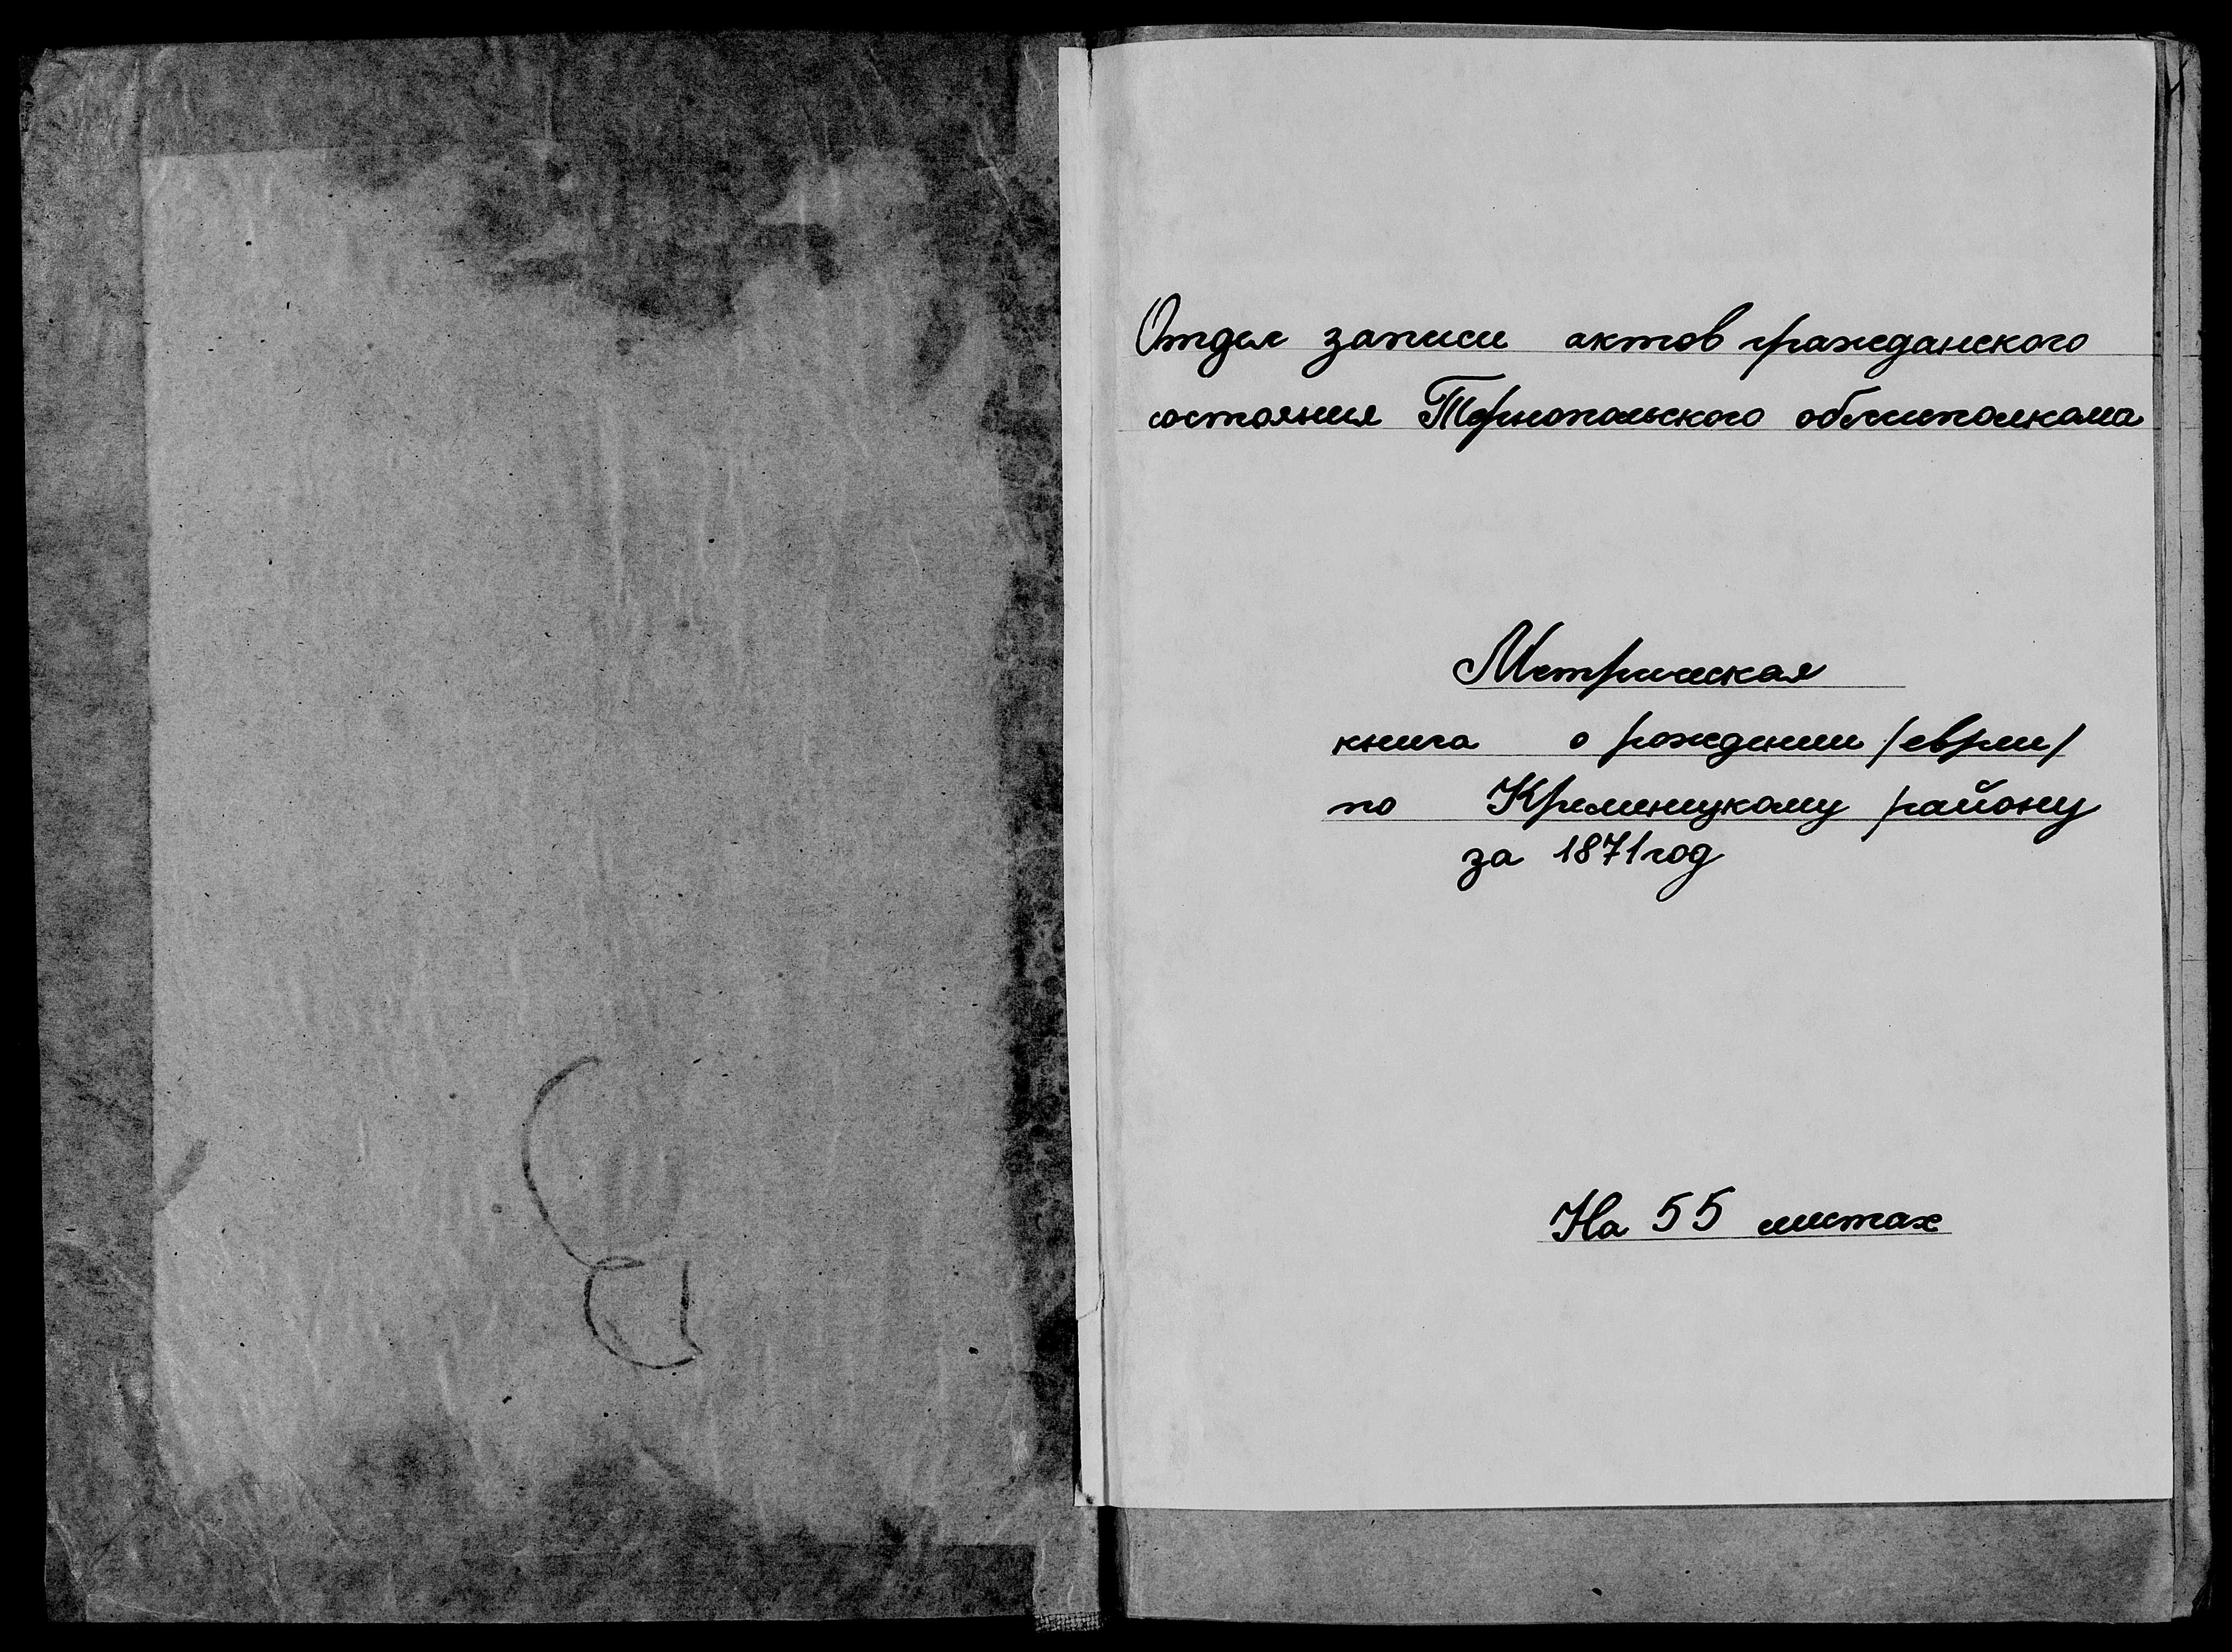 Отдел записи актов гражданского
состояния Тернопольского облисполкома
Метрическая
книга о рождении /евреи/
по Кременецкому району
за 1871 год
На 55 листах